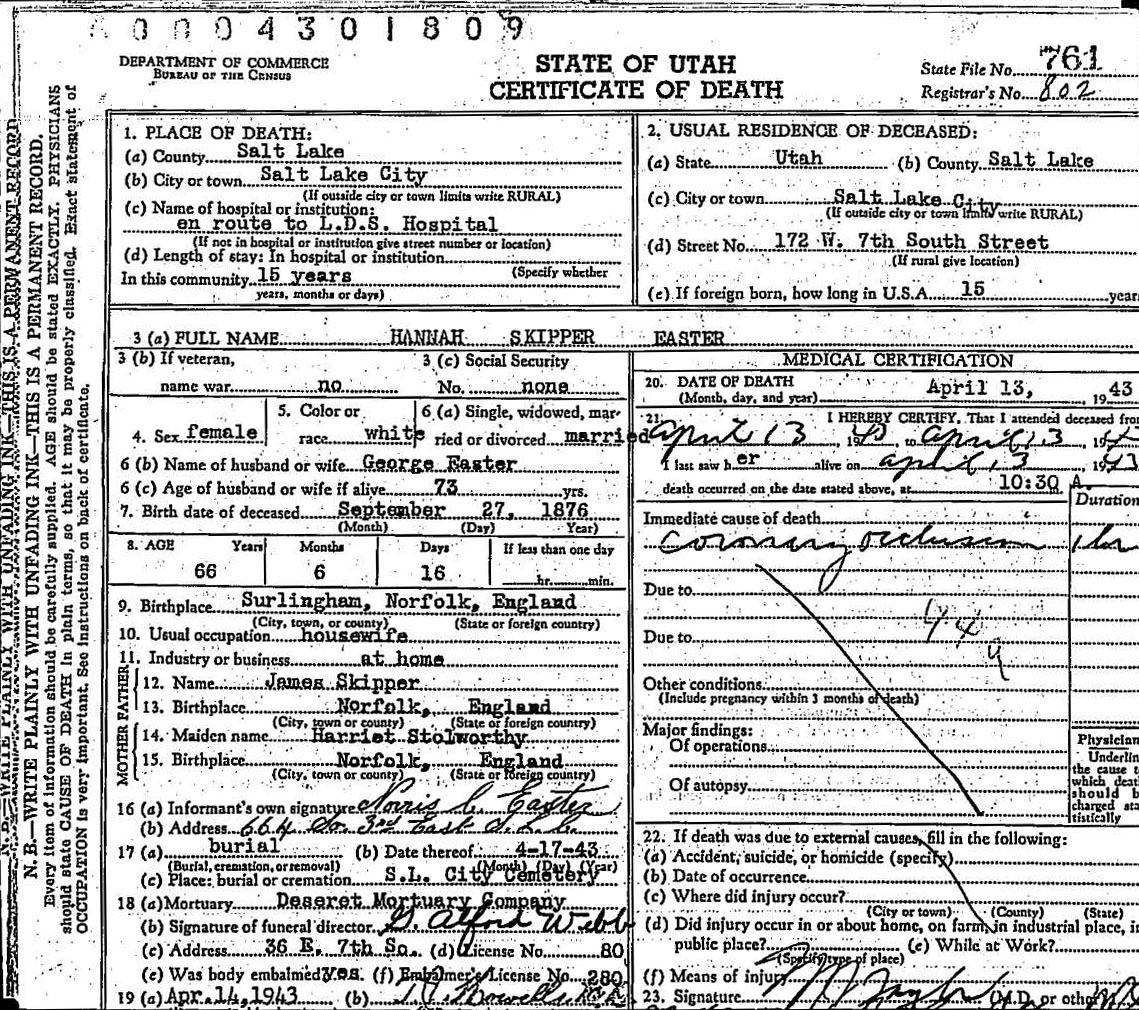 0004301809
DEPARTMENT OF COMMERCE
BUREAU OF THE CENSUS
STATE OF UTAH
CERTIFICATE OF DEATH
State File No. 761
Registrar's No. 802
N. B.—WRITE PLAINLY WITH UNFADING INK—THIS IS A PERMANENT RECORD.
Every item of information should be carefully supplied. AGE should be stated EXACTLY. PHYSICIANS
should state CAUSE OF DEATH in plain terms, so that it may be properly classified. Exact statement of
OCCUPATION is very important. See instructions on back of certificate.
1. PLACE OF DEATH:
(a) County Salt Lake
(b) City or town Salt Lake City
(If outside city or town limits write RURAL)
(c) Name of hospital or institution:
en route to L.D.S. Hospital
(If not in hospital or institution give street number or location)
(d) Length of stay: In hospital or institution
(Specify whether
In this community 15 years
years, months or days)
2. USUAL RESIDENCE OF DECEASED:
(a) State Utah (b) County Salt Lake
(c) City or town Salt Lake City
(If outside city or town limits write RURAL)
(d) Street No. 172 W. 7th South Street
(If rural give location)
(e) If foreign born, how long in U.S.A. 15 year
3 (a) FULL NAME HANNAH SKIPPER EASTER
3 (b) If veteran, 3 (c) Social Security
name war no No. none
4. Sex female 5. Color or race white 6 (a) Single, widowed, married or divorced married
6 (b) Name of husband or wife George Easter
6 (c) Age of husband or wife if alive 73 yrs.
7. Birth date of deceased September 27, 1876
(Month) (Day) Year)
8. AGE Years Months Days If less than one day
66 6 16 hr. min.
9. Birthplace Surlingham, Norfolk, England
(City, town, or county) (State or foreign country)
10. Usual occupation housewife
11. Industry or business at home
FATHER
12. Name James Skipper
13. Birthplace Norfolk, England
(City, town or county) (State or foreign country)
MOTHER
14. Maiden name Harriet Stolworthy
15. Birthplace Norfolk, England
(City, town or county) (State or foreign country)
16 (a) Informant's own signature Norris C. Easter
(b) Address 664 So. 3rd East S.L.C.
17 (a) burial (b) Date thereof 4-17-43
(Burial, cremation, or removal) (Month) (Day) (Year)
(c) Place: burial or cremation S.L. City Cemetery
18 (a) Mortuary Deseret Mortuary Company
(b) Signature of funeral director Alford Webb
(c) Address 36 E. 7th So. (d) License No. 80
(e) Was body embalmed Yes. (f) Embalmer's License No. 280
19 (a) Apr. 14, 1943 (b)
MEDICAL CERTIFICATION
20. DATE OF DEATH
(Month, day, and year) April 13, 1943
21. I HEREBY CERTIFY, That I attended deceased from
April 13 1943 to April 13 194
I last saw h er alive on April 13 1943
death occurred on the date stated above, at 10:30 A.
Duration
Immediate cause of death
Coronary occlusion 1 hr
Due to
Due to
Other conditions
(Include pregnancy within 3 months of death)
Major findings:
Of operations
Of autopsy
Physician
Underlin
the cause t
which deat
should b
charged sta
tistically
22. If death was due to external causes, fill in the following:
(a) Accident, suicide, or homicide (specify)
(b) Date of occurrence
(c) Where did injury occur?
(City or town) (County) (State)
(d) Did injury occur in or about home, on farm, in industrial place, in
public place? (e) While at Work?
(Specify type of place)
(f) Means of injury
23. Signature (M.D. or other)